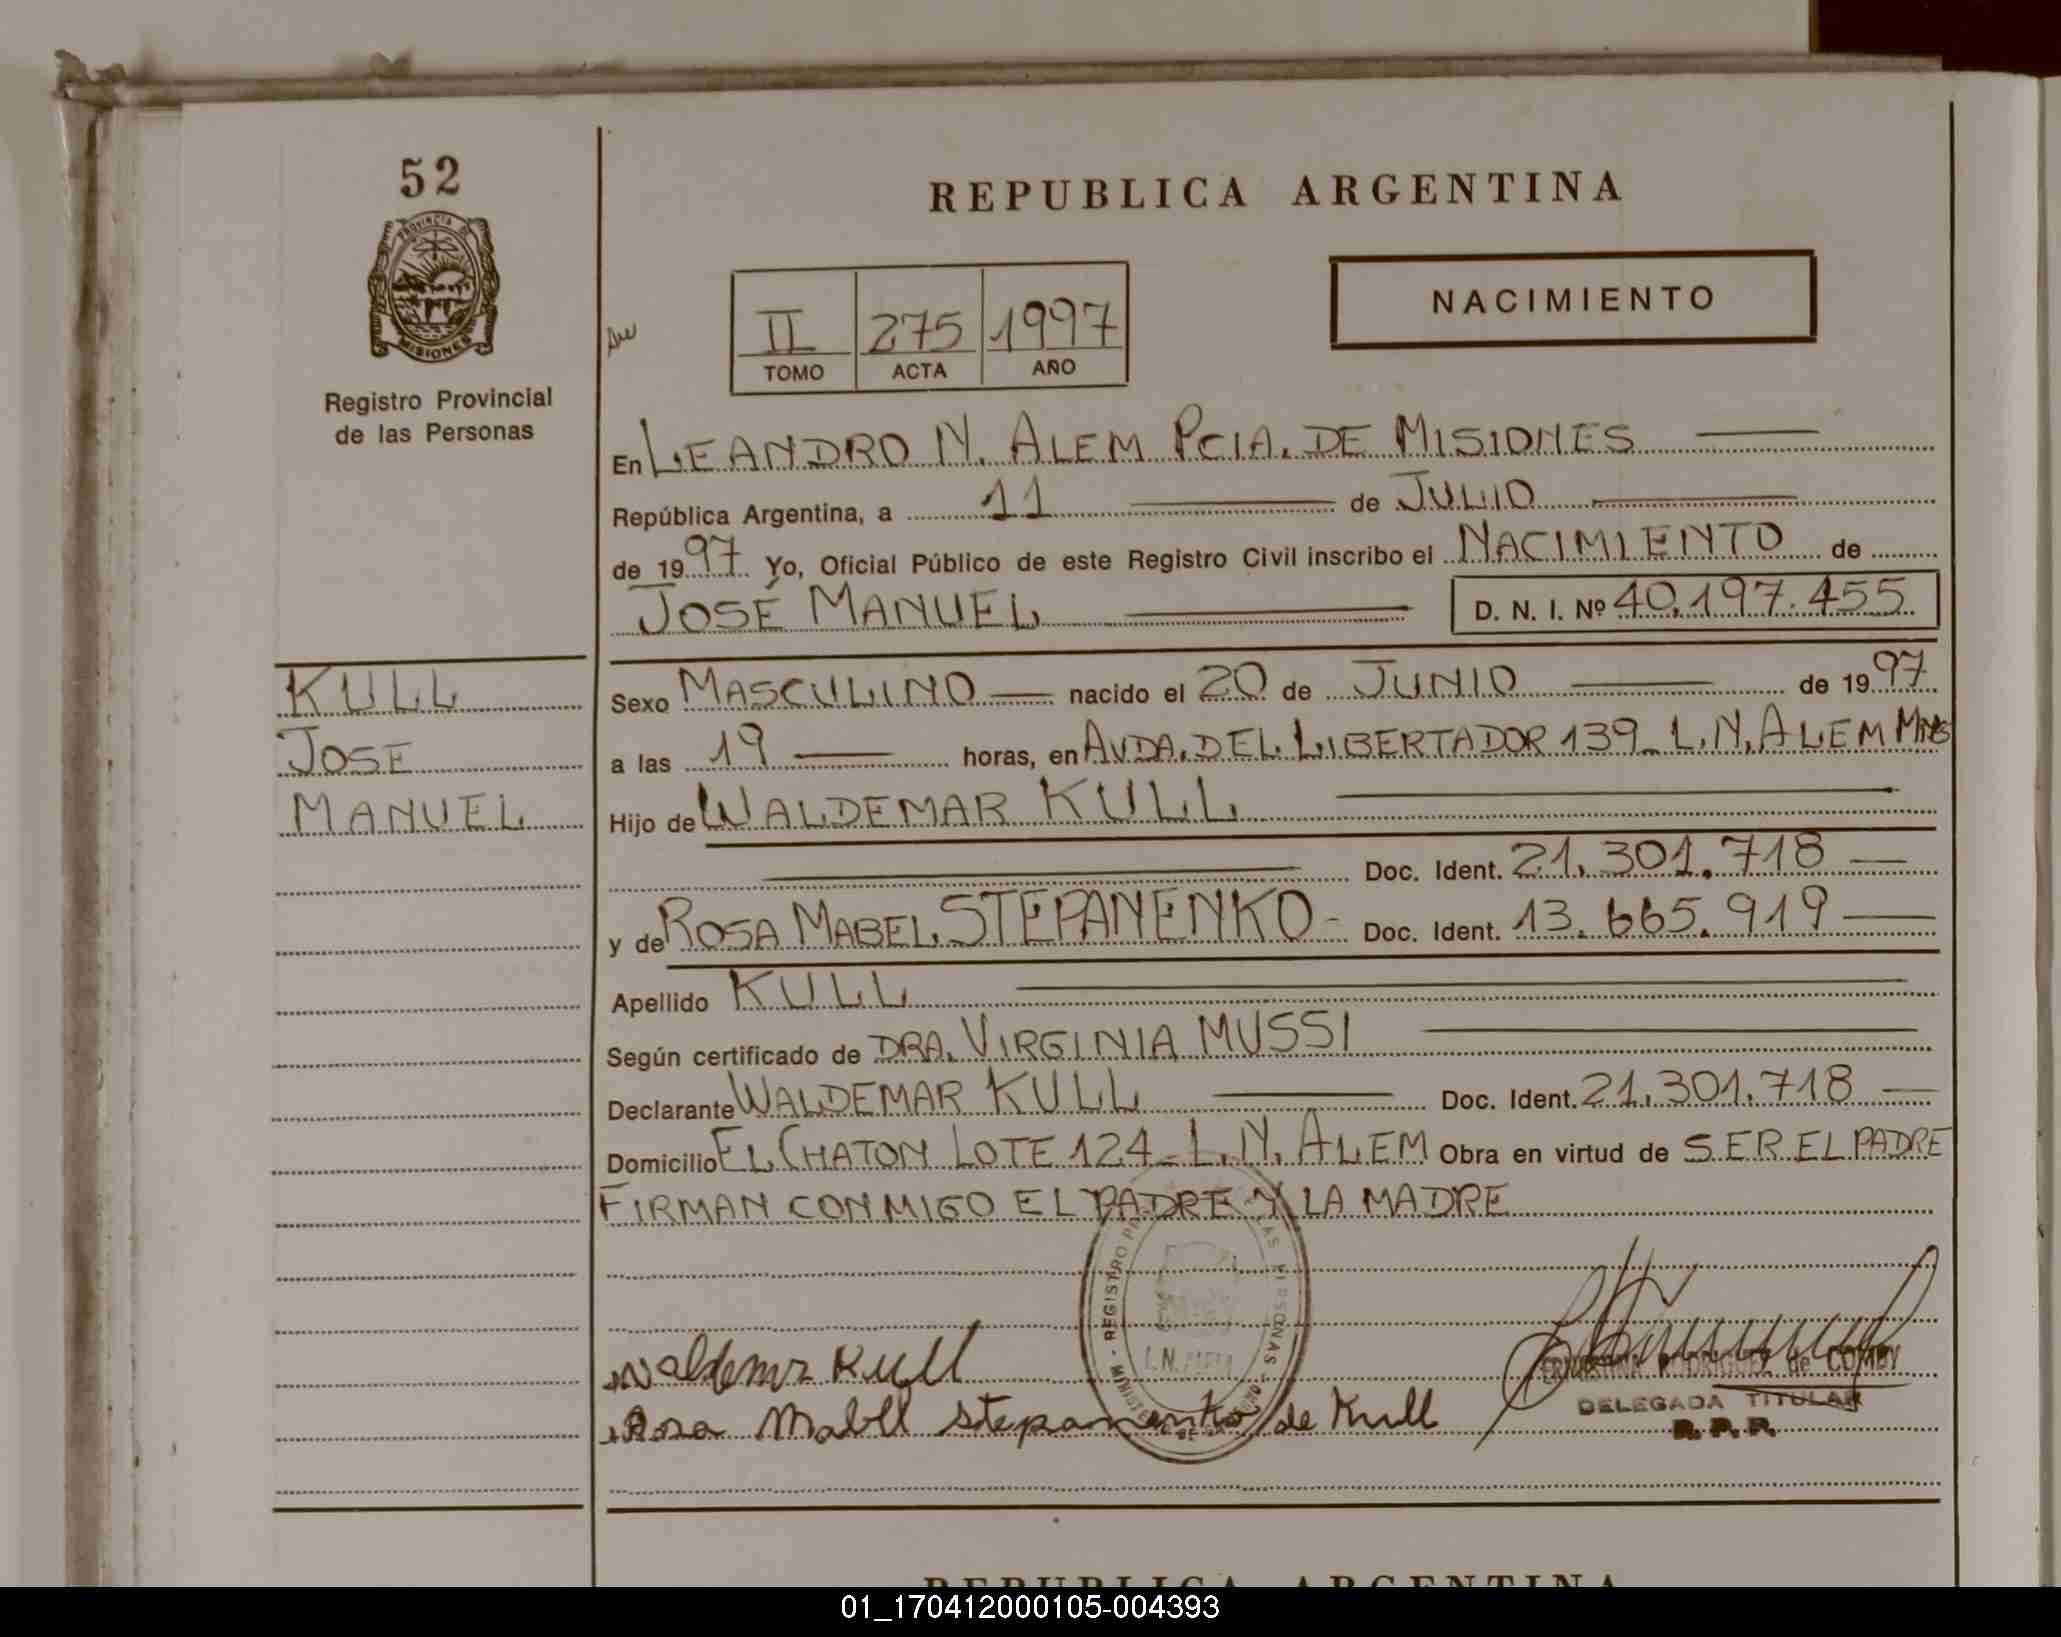 52
PROVINCIA DE
MISIONES
Registro Provincial
de las Personas
KULL
JOSE
MANUEL
REPUBLICA ARGENTINA
NACIMIENTO
II 275 1997
TOMO ACTA AÑO
En LEANDRO N. ALEM PCIA. DE MISIONES
República Argentina, a 11 de JULIO
de 1997 Yo, Oficial Público de este Registro Civil inscribo el NACIMIENTO de
JOSÉ MANUEL D. N. I. Nº 40.197.455
Sexo MASCULINO nacido el 20 de JUNIO de 1997
a las 19 horas, en AVDA. DEL LIBERTADOR 139 - L.N. ALEM MNES
Hijo de WALDEMAR KULL
Doc. Ident. 21.301.718
y de ROSA MABEL STEPANENKO - Doc. Ident. 13.665.919
Apellido KULL
Según certificado de DRA. VIRGINIA MUSSI
Declarante WALDEMAR KULL Doc. Ident. 21.301.718
Domicilio EL CHATON LOTE 124 - L.N. ALEM Obra en virtud de SER EL PADRE
FIRMAN CONMIGO EL PADRE Y LA MADRE
Waldemar Kull
Rosa Mabell Stepanenko de Kull
DELEGADA TITULAR
R. P. P.
REPUBLICA ARGENTINA
01_170412000105-004393